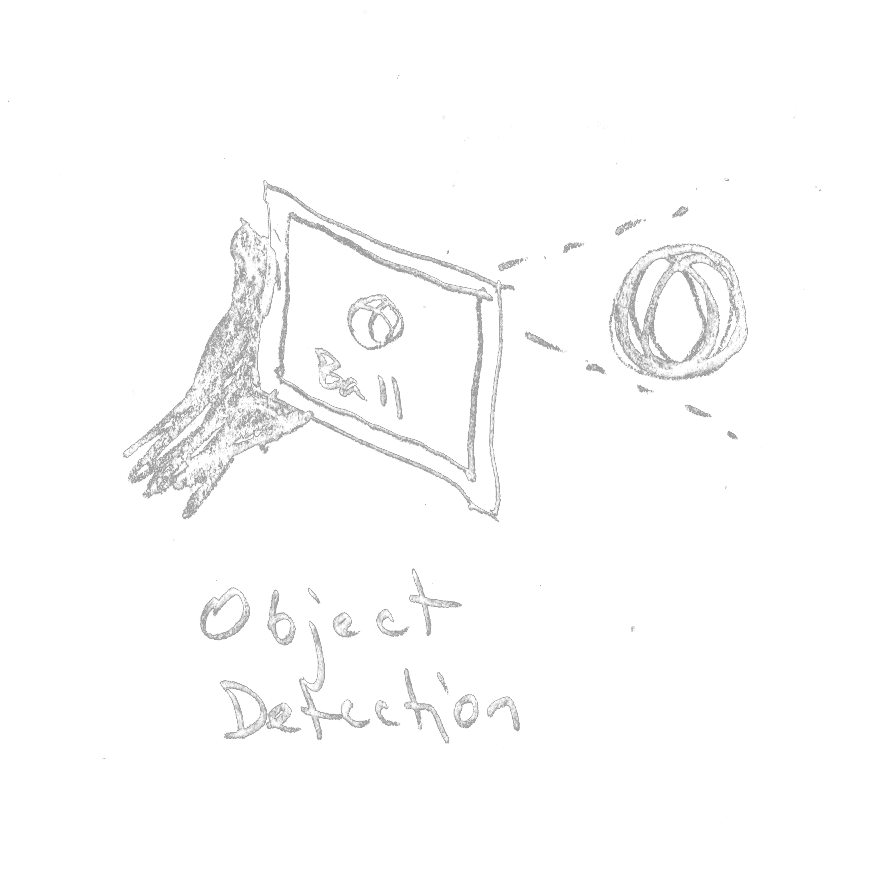 Ball
Object
Detection